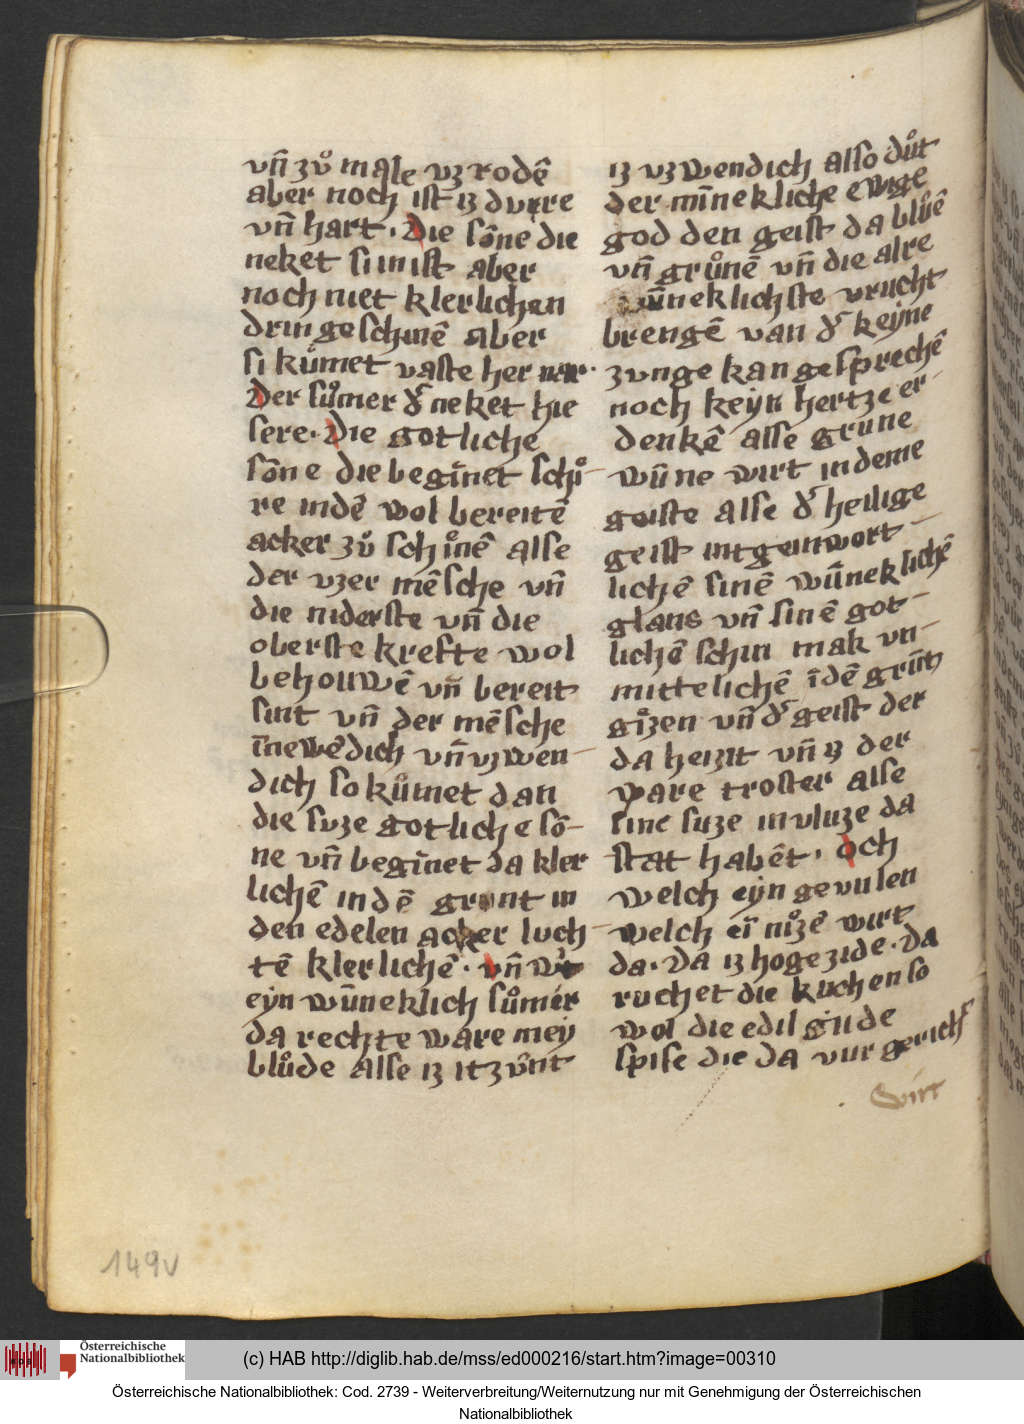 vn̄ zů male vz rodē
aber noch ist iz dvrre
vn̄ hart · Die sōne die
neket si im ist aber
noch niet klerlichen
dringeschinē aber
si kůmet vaste her nar·
Der sům̄er dˢ neket hie
sere· Die gotliche
sōne die begīnet schů-
re indē wol bereitē
acker zů schīnē alse
der vzer mēsche vn̄
die niderste vn̄ die
oberste krefte wol
behouwē vn̄ bereit
sint vn̄ der mēsche
īnewēdich vn̄ vzwen-
dich so kům̄et dan
die svze gotliche sō-
ne vn̄ begīnet da kler
lichē indē grunt in
den edelen acker luch-
tē klerlichē · vn̄ wˢt
eyn wūneklich sům̄er
da rechte ware mey
blůde alse iz itzvnt
iz vzwendich also důt
der mīnekliche ewige
god den geist da blůē
vn̄ grůnē vn̄ die alre
wūneklichste vrucht
brengē van dˢ keyne
zvnge kan gesprechē
noch keyn hertze er-
denkē alse grune
wūne wirt indeme
geiste alse dˢ heilige
geist intgeinwort-
lichē sinē wūneklichē
glans vn̄ sinē got-
lichē schin mak vn-
mittelichē īdē grūt
gīzen vn̄ dˢ geist der
da heizit vn̄ iz der
ware troster alse
sine suze invluze da
stat habēt · Och
welch eyn gevulen
welch eī nizē wirt
da· Da iz hogezide· Da
ruchet die kuchen so
wol die edil gude
spise die da vur gericht
wirt
149v
Österreichische
Nationalbibliothek
(c) HAB http://diglib.hab.de/mss/ed000216/start.htm?image=00310
Österreichische Nationalbibliothek: Cod. 2739 - Weiterverbreitung/Weiternutzung nur mit Genehmigung der Österreichischen
Nationalbibliothek